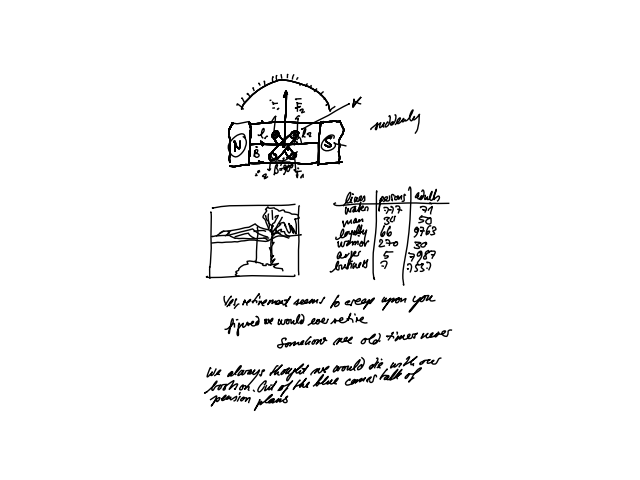 K
suddenly
N S
B
lives persons adults
water 777 71
man 30 50
loyalty 66 9763
woman 270 30
5 7987
business 7 7537
Yes, retirement seems to creep upon you
figured we would ever retire
Somehow we old timers never
We always thought we would die with our
boots on. Out of the blue comes talk of
pension plans